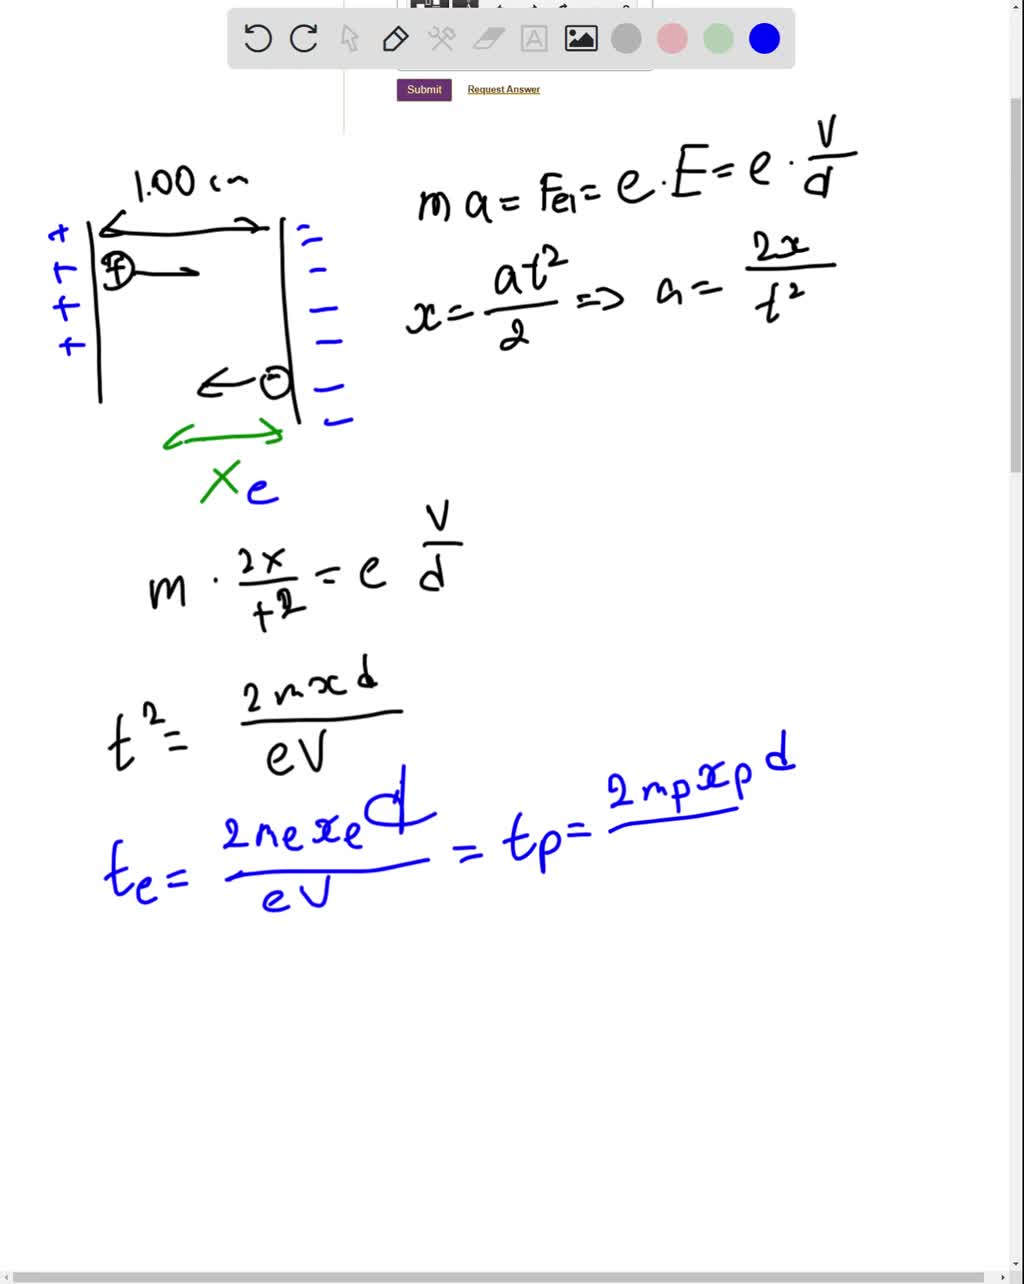 A
Submit Request Answer
1.00 cm
m a = Fel = e · E = e · V/d
x = at²/2 => a = 2x/t²
+ + + +
+ -
Xe
m · 2x/t² = e V/d
t² = 2mxd/eV
te = 2mexed/eV = tp = 2mpxpd